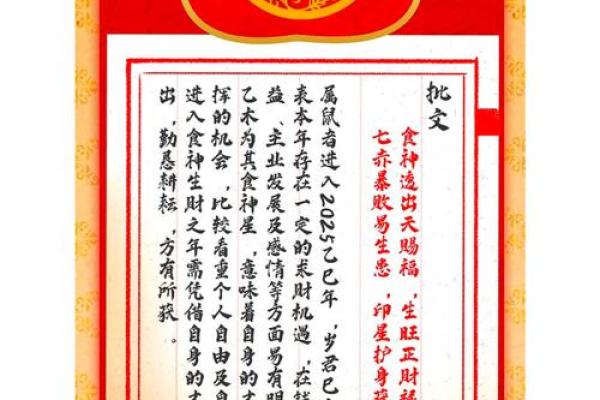 批文
食神透出天赐福，生旺正财
七赤暴败易生患，印星护身
属鼠者进入2025乙巳年，岁君巳
表本年存在一定的求财机遇，在钱
益、主业发展及感情等方面易有明
乙木为其食神星，意味着自身的才
挥的机会，比较看重个人自由及自
进入食神生财之年需凭借自身的才
出，勤恳耕耘，方有所获。